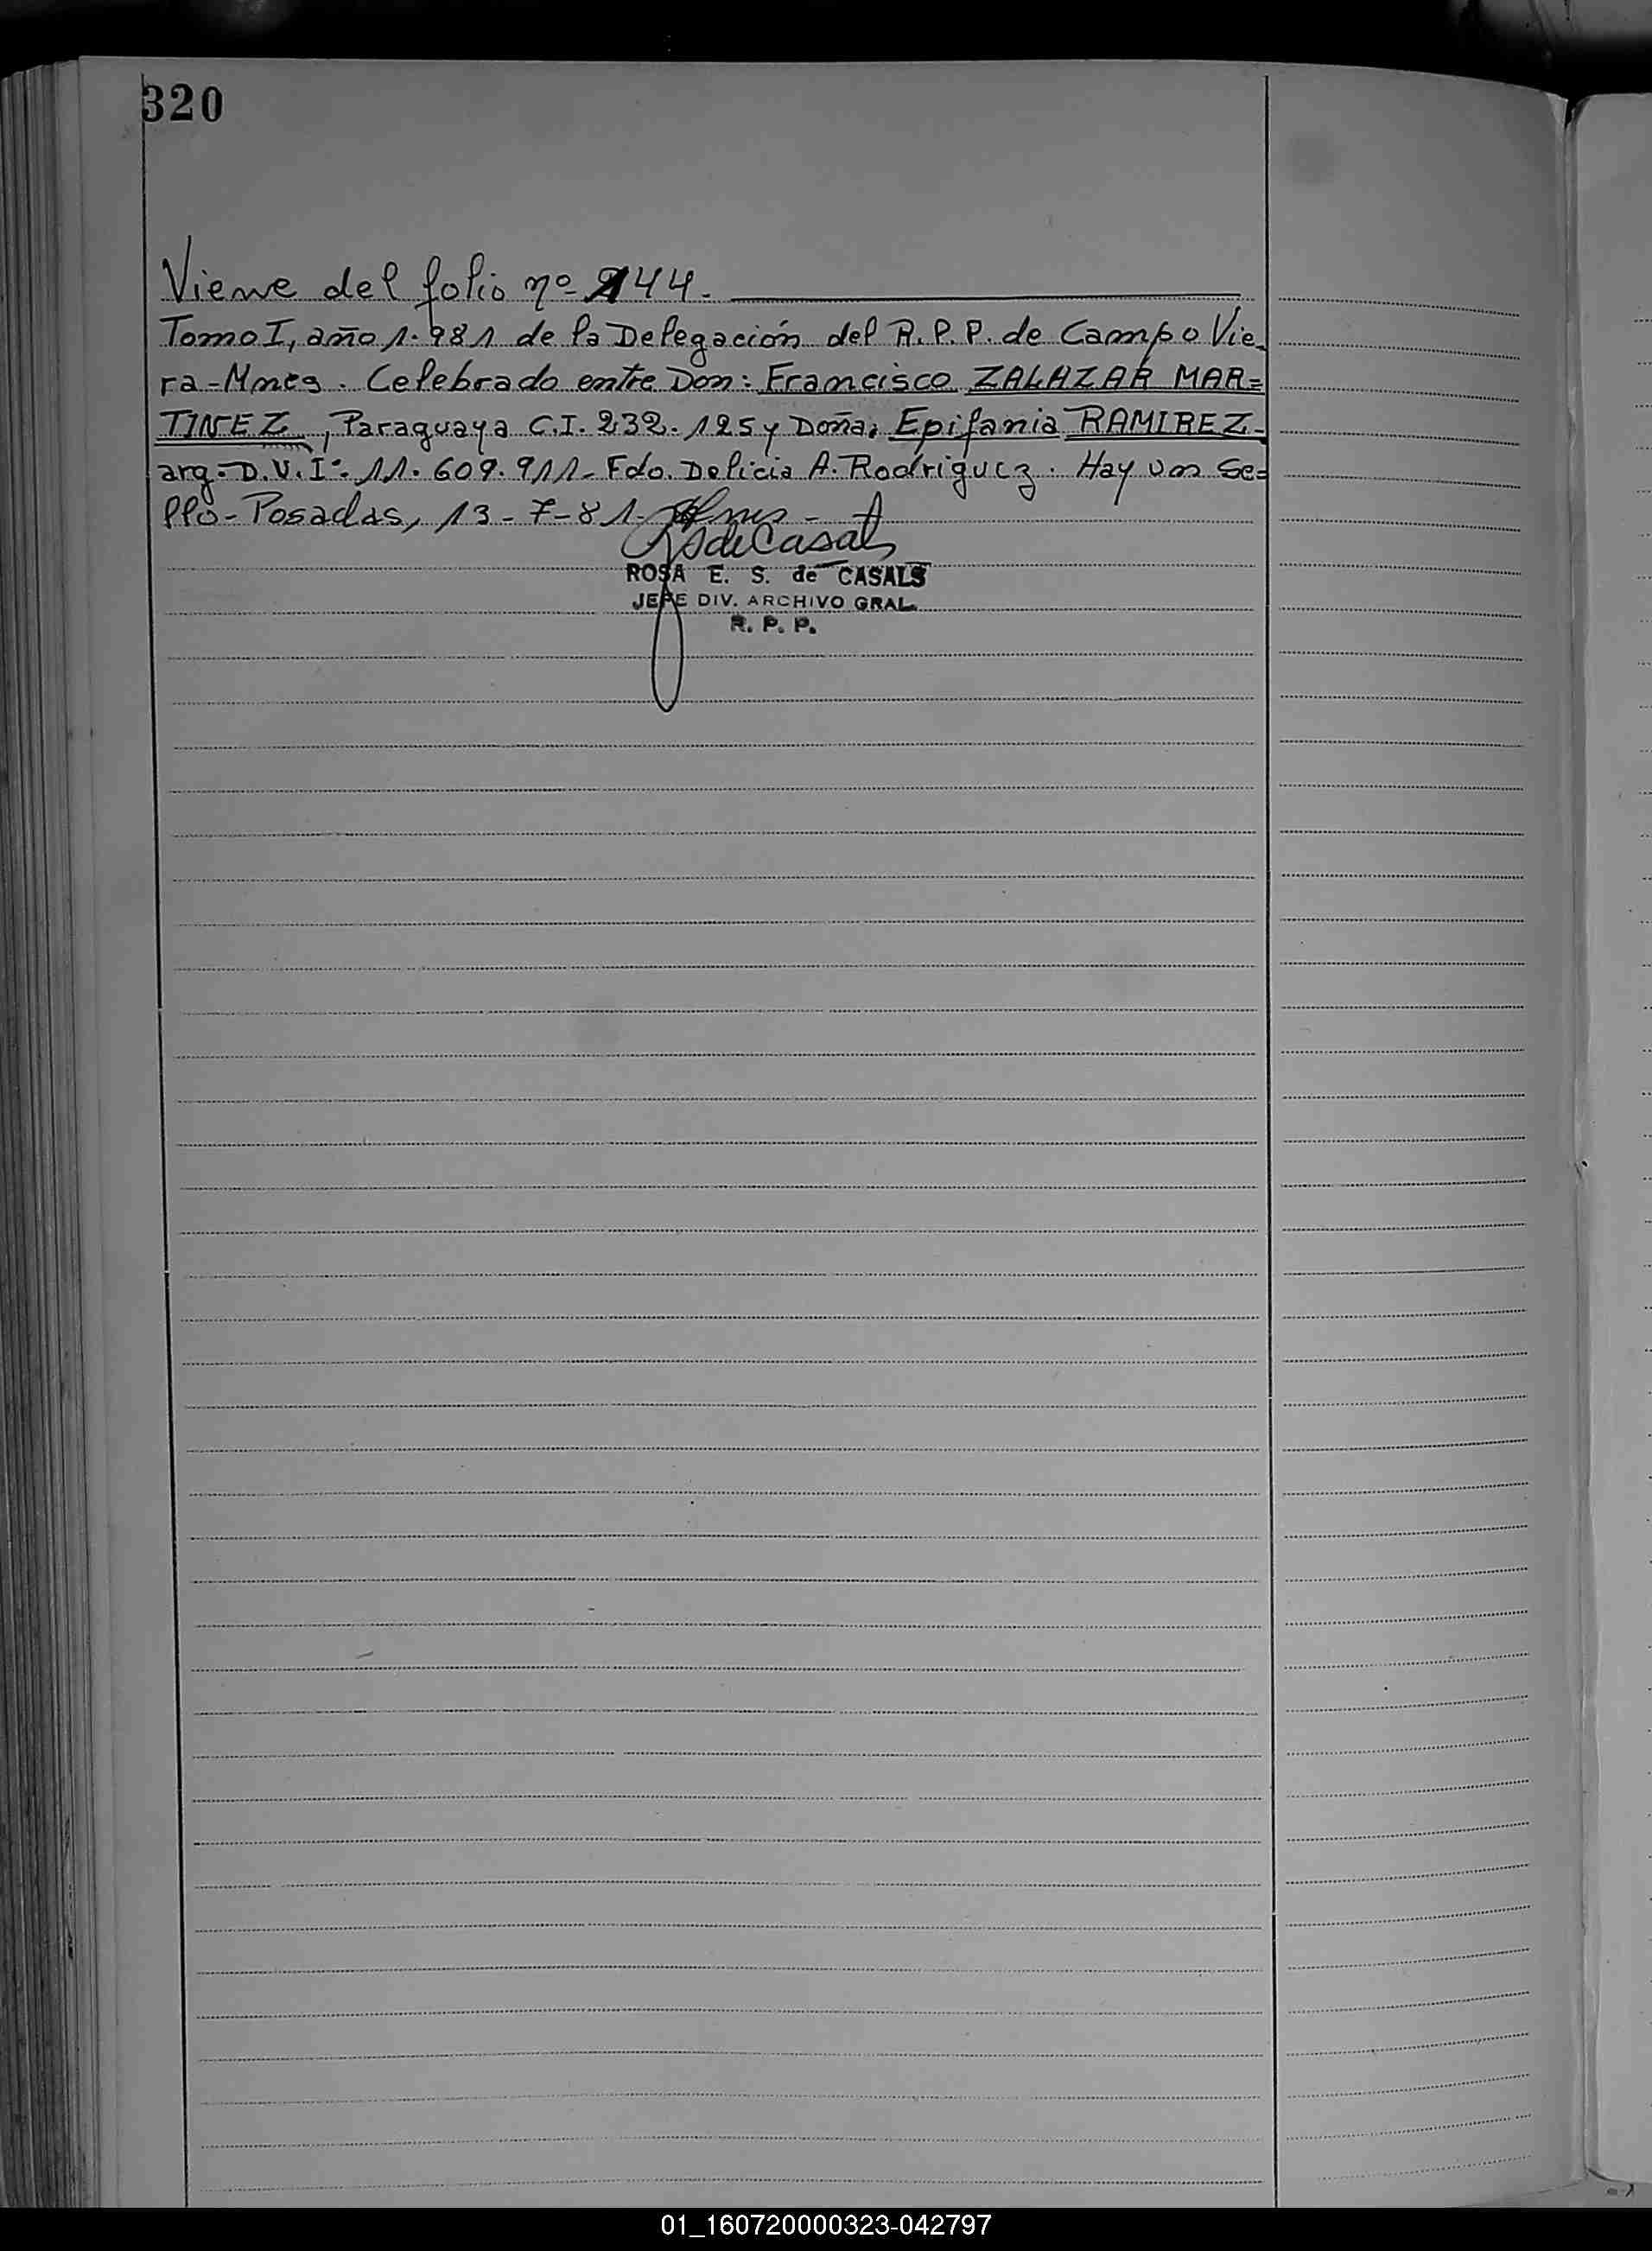 320
Viene del folio nº 144.
Tomo I, año 1.981 de la Delegación del R.P.P. de Campo Vie-
ra-Mnes. Celebrado entre Don: Francisco ZALAZAR MAR=
TINEZ, Paraguaya C.I. 232.125 y Doña: Epifania RAMIREZ-
arg.-D.U.I: 11.609.911- Fdo. Delicia A. Rodríguez. Hay un Se=
llo-Posadas, 13-7-81-
ROSA E. S. de CASALS
JEFE DIV. ARCHIVO GRAL.
R. P. P.
01_160720000323-042797